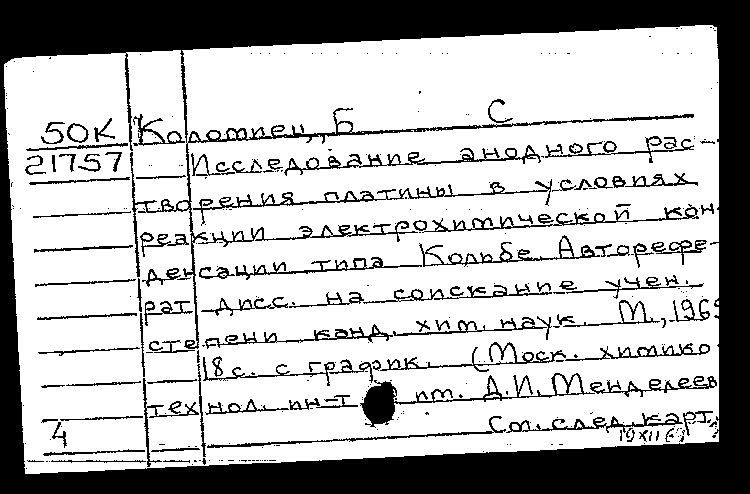 50К Коломиец, Б С
21757 Исследование анодного рас-
творения платины в условиях
реакции электрохимической кон-
денсации типа Кольбе. Авторефе-
рат дисс. на соискание учен.
степени канд. хим. наук. М., 1969
18 с. с график. (Моск. химико
технол. ин-т им. Д.И. Менделеев
4 См. след. карт.
19 XII 69